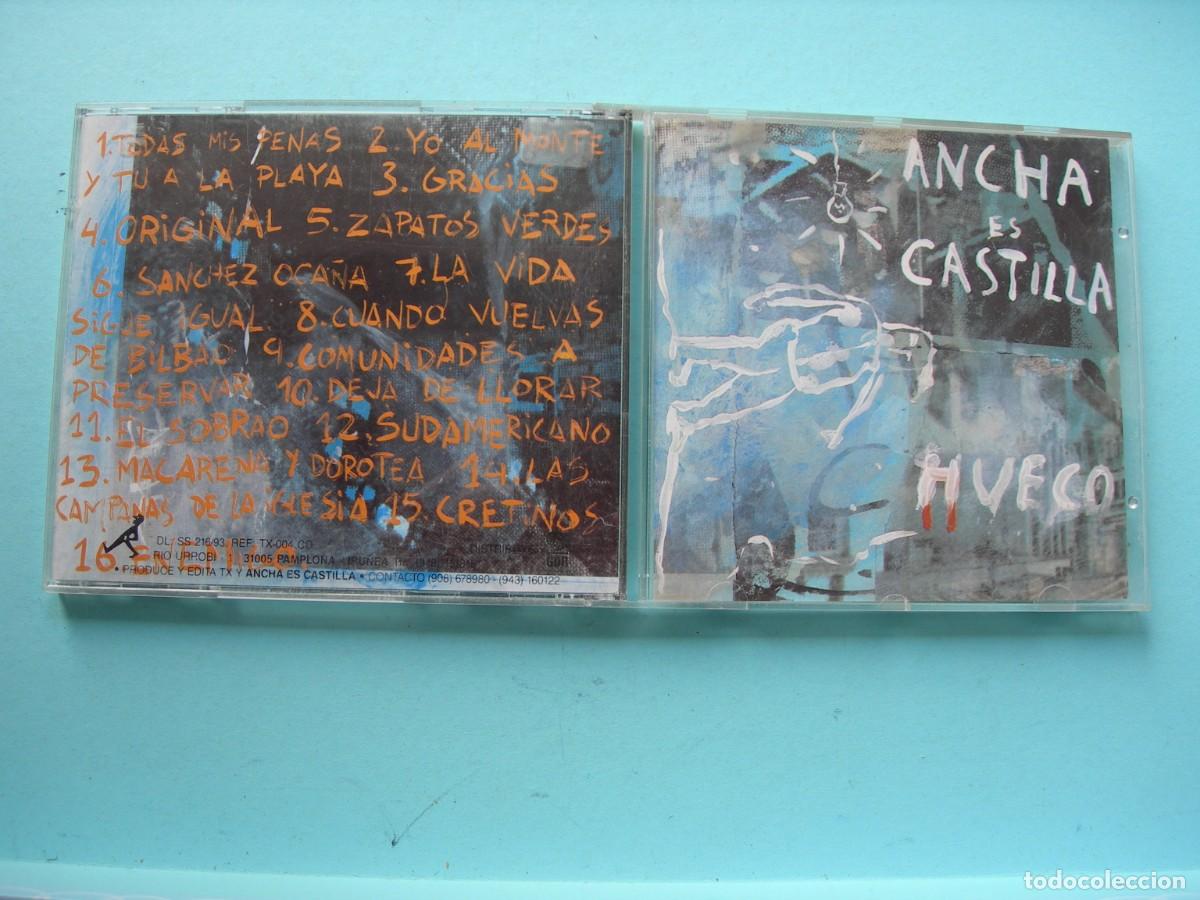 1. TODAS MIS PENAS 2. YO AL MONTE
Y TU A LA PLAYA 3. GRACIAS
4. ORIGINAL 5. ZAPATOS VERDES
6. SANCHEZ OCAÑA 7. LA VIDA
SIGUE IGUAL 8. CUANDO VUELVAS
DE BILBAO 9. COMUNIDADES A
PRESERVAR 10. DEJA DE LLORAR
11. EL SOBRAO 12. SUDAMERICANO
13. MACARENA Y DOROTEA 14. LAS
CAMPANAS DE LA IGLESIA 15. CRETINOS
16.
DL: SS 216/93. REF: TX-004 CD
RIO URROBI 31005 PAMPLONA - IRUÑEA
• PRODUCE Y EDITA TX Y ANCHA ES CASTILLA • CONTACTO (908) 678980 - (943) 160122
GOR
ANCHA
ES
CASTILLA
HUECO
todocoleccion